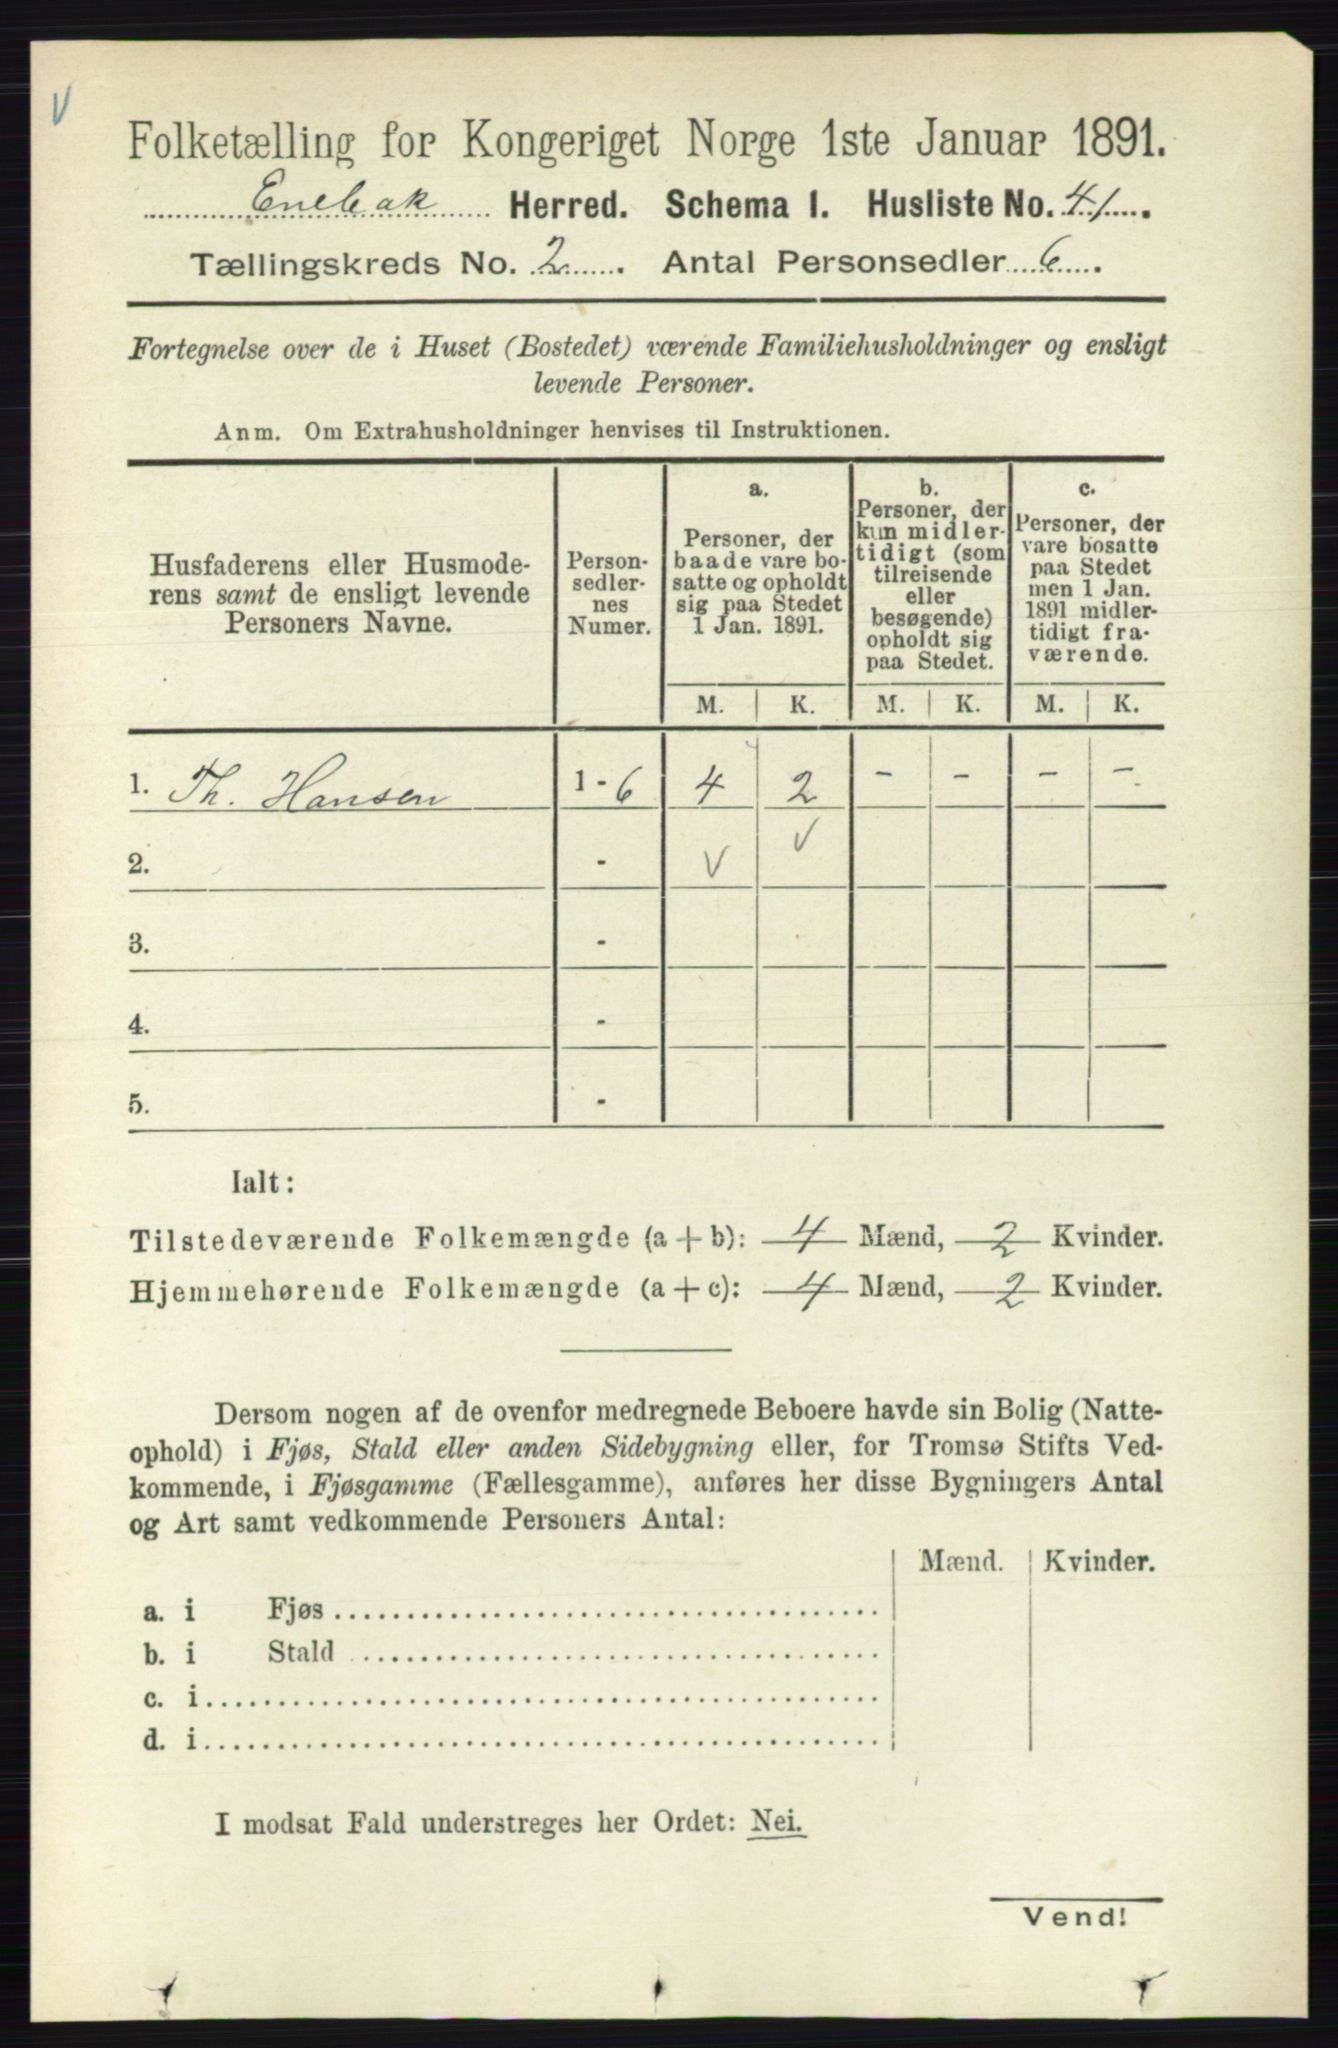 V
Folketælling for Kongeriget Norge 1ste Januar 1891.
Enebak Herred. Schema I. Husliste No. 41.
Tællingskreds No. 2. Antal Personsedler 6.
Fortegnelse over de i Huset (Bostedet) værende Familiehusholdninger og ensligt
levende Personer.
Anm. Om Extrahusholdninger henvises til Instruktionen.
Husfaderens eller Husmode-
rens samt de ensligt levende
Personers Navne.
Person-
sedler-
nes
Numer.
a.
Personer, der
baade vare bo-
satte og opholdt
sig paa Stedet
1 Jan. 1891.
b.
Personer, der
kun midler-
tidigt (som
tilreisende
eller
besøgende)
opholdt sig
paa Stedet.
c.
Personer, der
vare bosatte
paa Stedet
men 1 Jan.
1891 midler-
tidigt fra-
værende.
M. K. M. K. M. K.
1. Th. Hansen 1-6 4 2 - - - -
2. - V V
3. -
4. -
5. -
Ialt:
Tilstedeværende Folkemængde (a + b): 4 Mænd, 2 Kvinder.
Hjemmehørende Folkemængde (a + c): 4 Mænd, 2 Kvinder.
Dersom nogen af de ovenfor medregnede Beboere havde sin Bolig (Natte-
ophold) i Fjøs, Stald eller anden Sidebygning eller, for Tromsø Stifts Ved-
kommende, i Fjøsgamme (Fællesgamme), anføres her disse Bygningers Antal
og Art samt vedkommende Personers Antal:
Mænd. Kvinder.
a. i Fjøs
b. i Stald
c. i
d. i
I modsat Fald understreges her Ordet: Nei.
Vend!